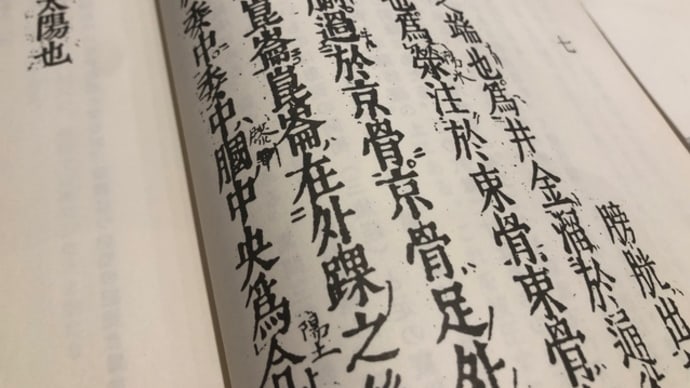 七
膀胱出
端也爲井金溜於通
也爲滎注於束骨束骨
過於京骨京骨足外
崑崙崑崙在外踝之
委中委中膕中央爲合
太陽也